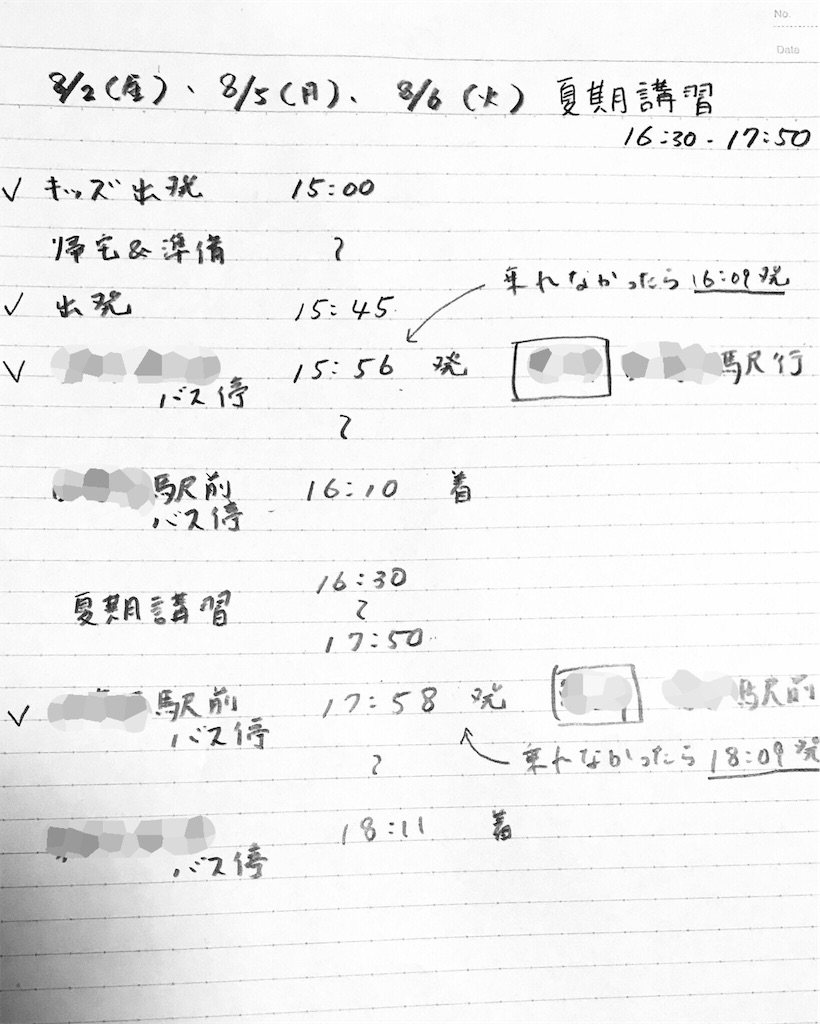 No.
Date
8/2(金)、8/5(月)、8/6(火) 夏期講習
16:30-17:50
✓ キッズ出発 15:00
帰宅&準備 〜
乗れなかったら16:09発
✓ 出発 15:45
✓ 15:56 発 駅行
バス停
〜
駅前 16:10 着
バス停
16:30
夏期講習 〜
17:50
✓ 駅前 17:58 発 駅前
バス停
乗れなかったら18:09発
〜
18:11 着
バス停